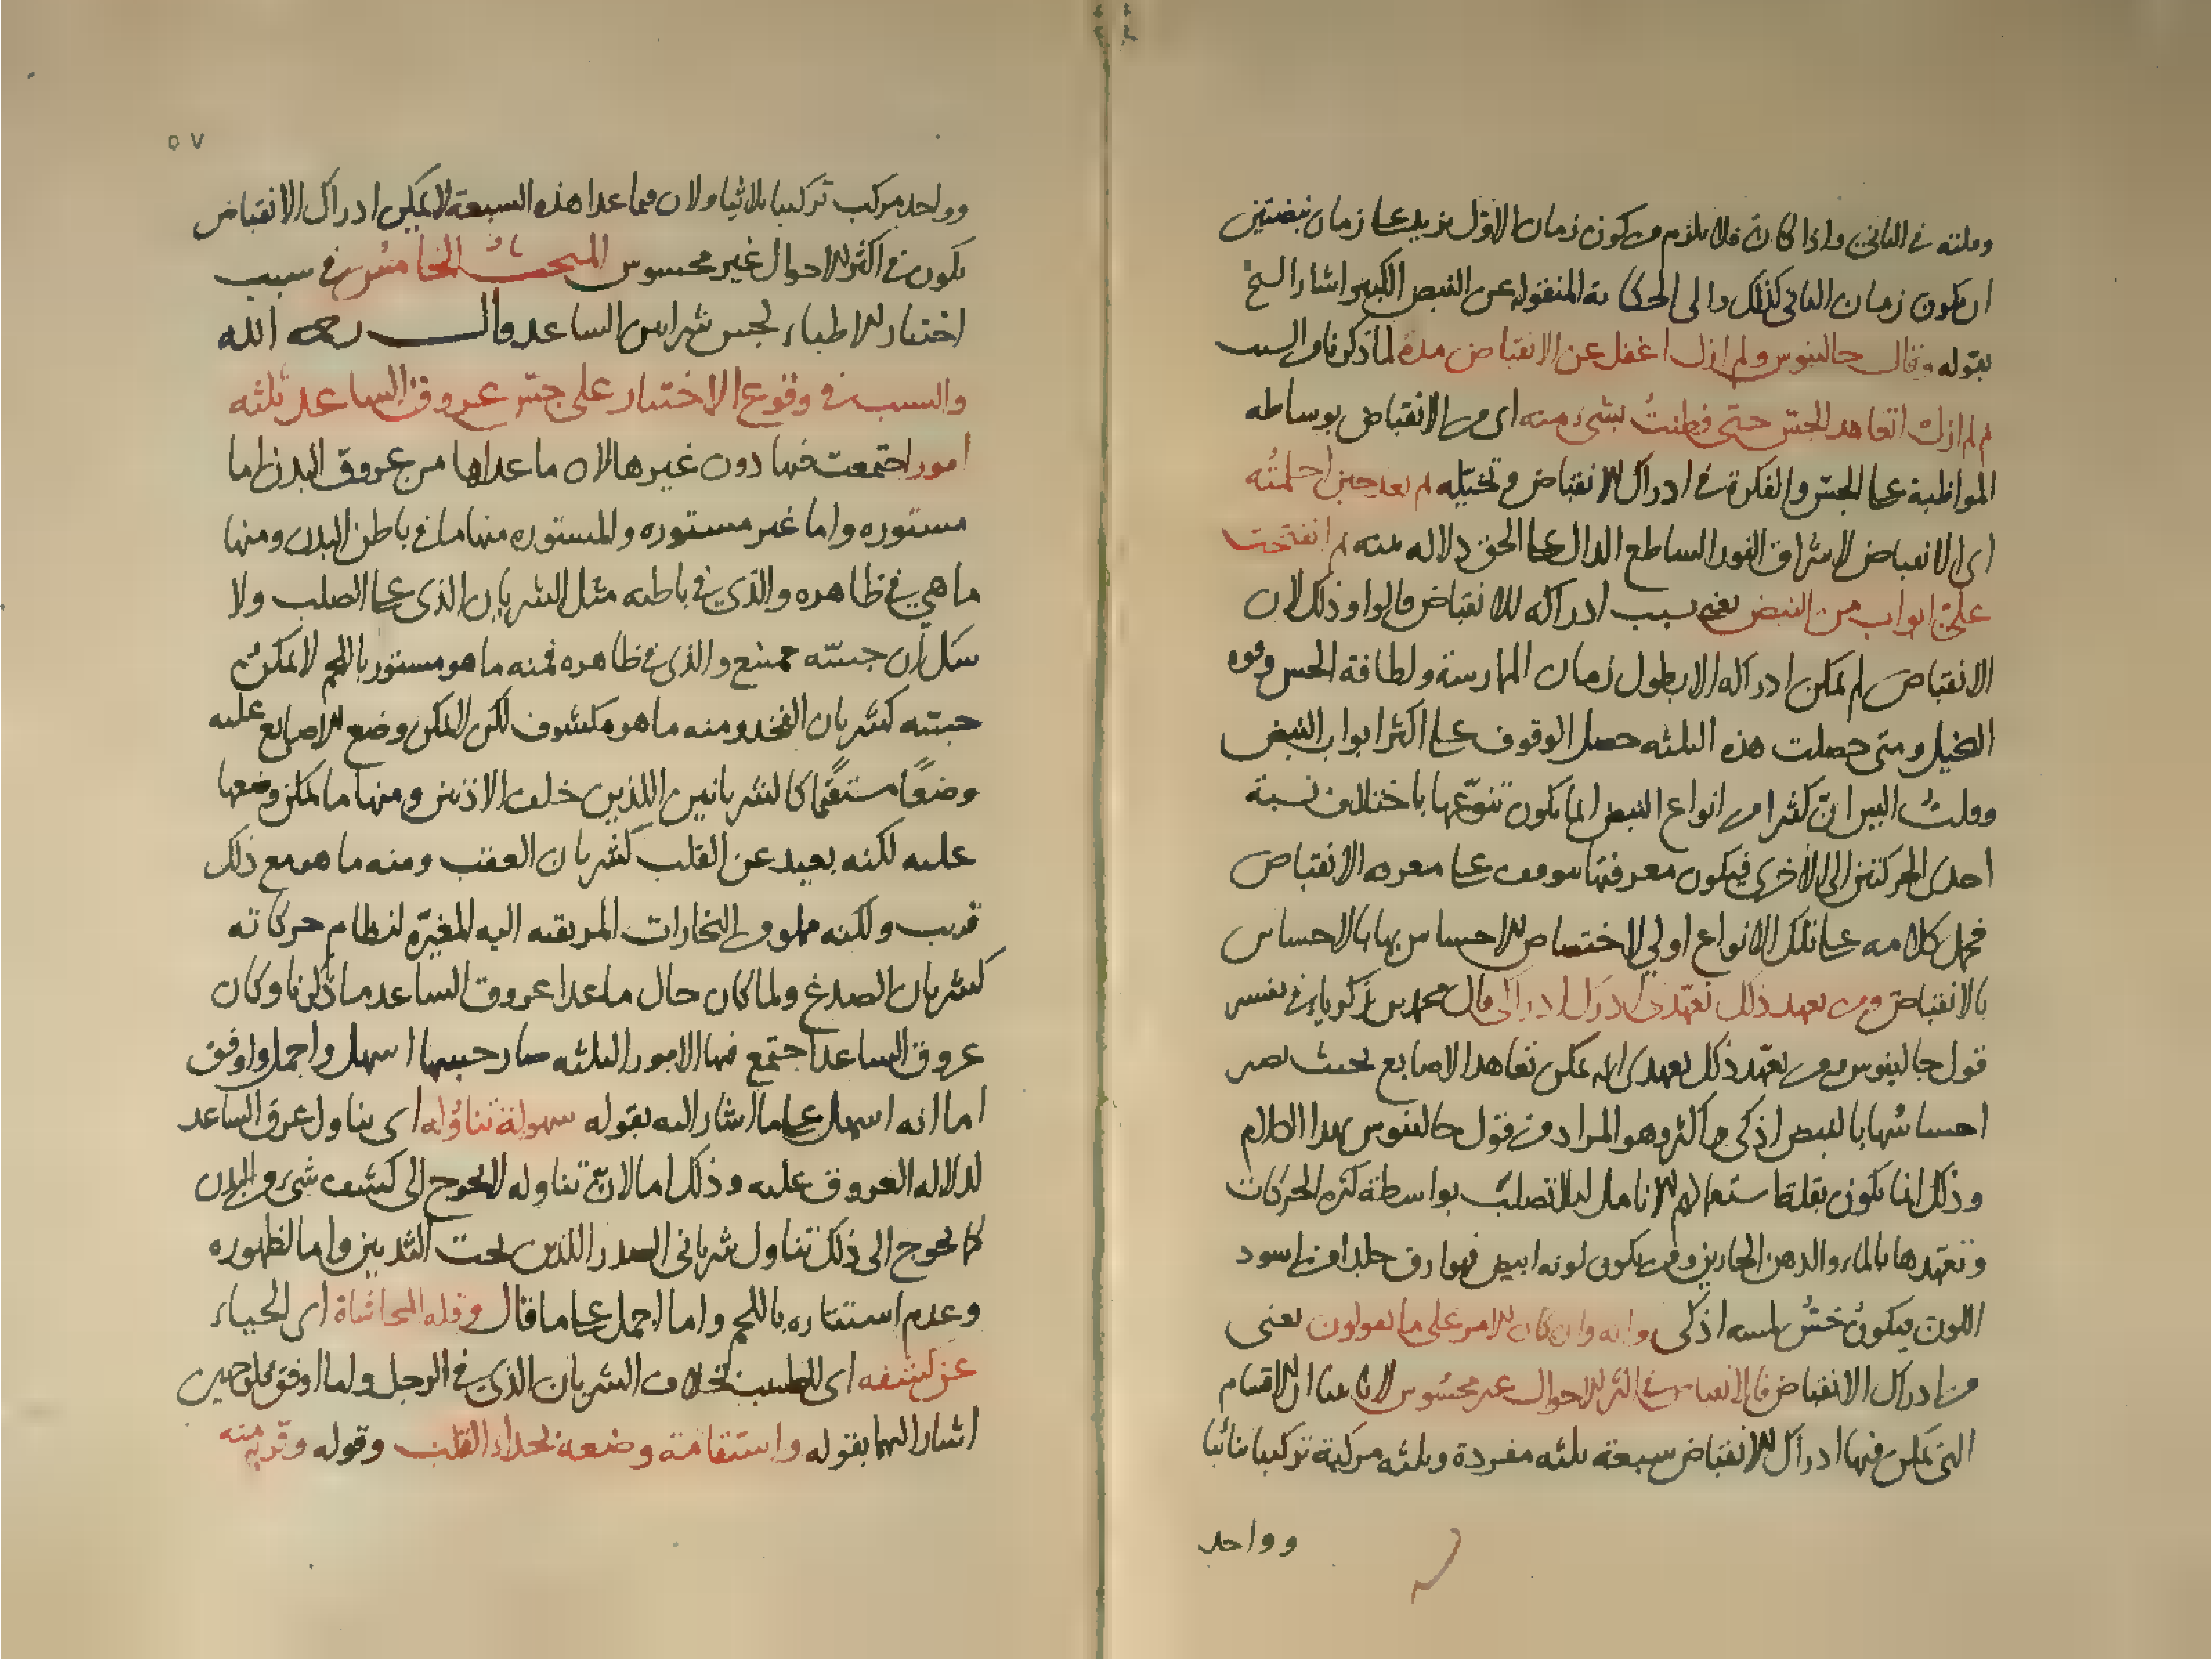 وثلثه في الثاني واذا كان فلا يلزم من كون زمان الاول يزيد على زمان نبضتين
ان يكون زمان الثاني كذلك والى الحكاية المنقوله عن النبض الكبير اشار الشيخ
بقوله وقال جالينوس ولم ازل اغفل عن الانقباض مدة لما ذكرناه السبب
ثم لم ازل اتعاهد الجس حتى فطنت بشيء منه اى من الانقباض بوساطه
المواظبة على الجس والفكرة في ادراك الانقباض وتخيله ثم بعد حين احكمته
اى الانقباض لاشراق النور الساطع الدال على الحق دلاله منه ثم انفتحت
على ابواب من النبض يعنى بسبب ادراكه للانقباض قالوا وذلك لان
الانقباض لم يمكن ادراكه الا بطول زمان الممارسة ولطافة الحس وقوه
التخيل ومتى حصلت هذه الثلثه حصل الوقوف على اكثر ابواب النبض
وقلت البين ان كثيرا من انواع النبض انما يكون تنوعها باختلاف نسبة
احدى الحركتين الى الاخرى فيكون معرفتها موقوف على معرفه الانقباض
فحمل كلامه على تلك الانواع اولى لاختصاص الاحساس بها بالاحساس
بالانقباض ومن تعهد ذلك تعهدى ادرك ادراكى قال محمد بن زكرياء في تفسير
قول جالينوس ومن تعهد ذلك تعهدى انه يمكن تعاهد الاصابع بحيث تصير
احساسها بالنبض اذكى واكثر وهو المراد من قول جالينوس بهذا الكلام
وذلك انما يكون بقلة استعمالهم الانامل ليلا تصلب بواسطة كثره الحركات
وتعهدها بالماء والدهن الحارين ومن يكون لونه ابيض فهو ارق جلدا من اسود
اللون فيكون حس لمسه اذكى وانه وان كان الامر على ما يقولون يعنى
من ادراك الانقباض فالانقباض في اكثر الاحوال غير محسوس لان الاقسام
التي يمكن فيها ادراك الانقباض سبعة ثلثه مفردة وثلثه مركبة تركيبا ثنائيا
وواحد
٥٧
وواحد مركب تركيبا ثلاثيا ولان فيما عدا هذه السبعة لا يمكن ادراك الانقباض
يكون في اكثر الاحوال غير محسوس المبحث الخامس في سبب
اختيار الاطباء لجس شرايين الساعد قال رحمه الله
والسبب في وقوع الاختيار على جس عروق الساعد ثلثه
امور اجتمعت فيها دون غيرها لان ما عداها من عروق البدن اما
مستوره واما غير مستوره والمستوره منها ما في باطن البدن ومنها
ما هي في ظاهره والذي في باطنه مثل الشريان الذى على الصلب ولا
شك ان جسته ممتنع والذى في ظاهره فمنه ما هو مستور باللحم لا يمكن
جسته كشريان الفخد ومنه ما هو مكشوف لكن لا يمكن وضع الاصابع عليه
وضعا مستقيما كالشريانين اللذين خلف الاذنين ومنها ما يمكن وضعها
عليه لكنه بعيد عن القلب كشريان العقب ومنه ما هو مع ذلك
قريب ولكنه مملو من البخارات المرتقيه اليه المغيرة لنظام حركاته
كشريان الصدغ ولما كان حال ما عدا عروق الساعد ما ذكرنا وكان
عروق الساعد اجتمع فيها الامور الثلثه صار جسها اسهل واجمل واوفق
اما انه اسهل على ما اشار اليه بقوله سهولة تناوله اى تناول عرق الساعد
لدلاله العروق عليه وذلك اما لان تناوله لا يحوج الى كشف شيء من البدن
كما يحوج الى ذلك تناول شرياني الصدر اللذين تحت الثديين واما لظهوره
وعدم استتاره باللحم واما اجمل على ما قال وقله المحاشاة اى الحياء
عن كشفه اى للطبيب بخلاف الشريان الذى في الرجل واما اوفق فلوجهين
اشار اليهما بقوله واستقامة وضعه بحذاء القلب وقوله وقربه منه